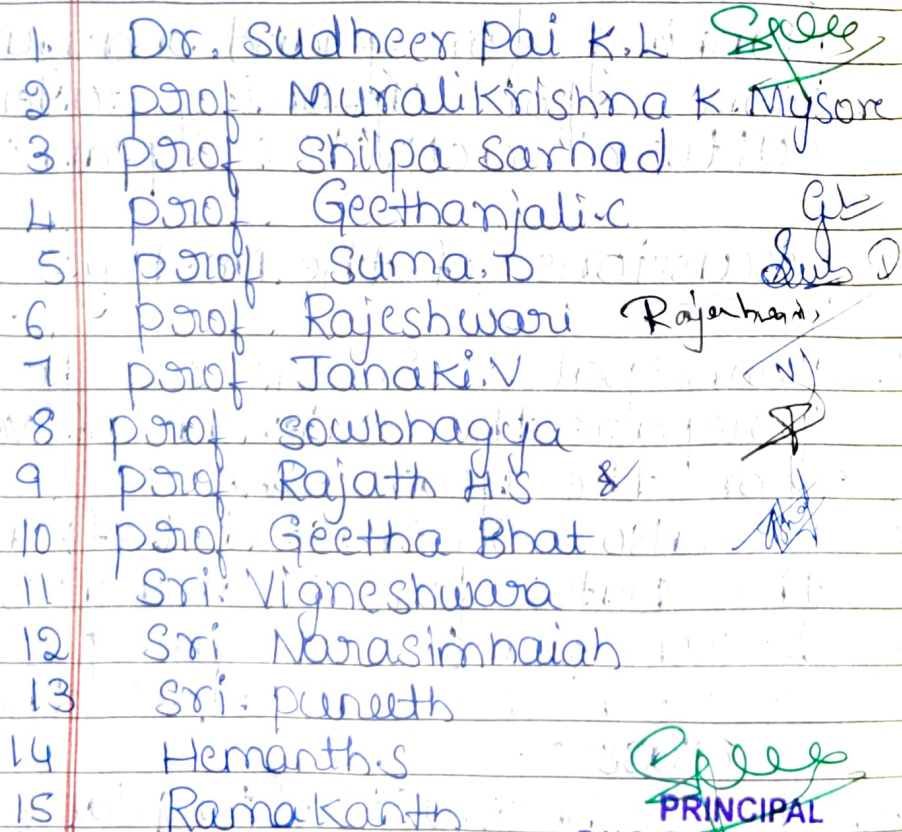 1. Dr. Sudheer Pai K.L
2. Prof. Muralikrishna K. Mysore
3. Prof. Shilpa Sarnad
4 Prof. Geethanjali.C
5 Prof. Suma.D
6. Prof. Rajeshwari Rajeshwari
7. Prof Janaki.V
8 Prof. Sowbhagya
9 Prof. Rajath H.S
10 Prof. Geetha Bhat
11. Sri. Vigneshwara
12 Sri Narasimhaiah
13 Sri. Puneeth
14 Hemanth.S
15 Ramakanth
PRINCIPAL